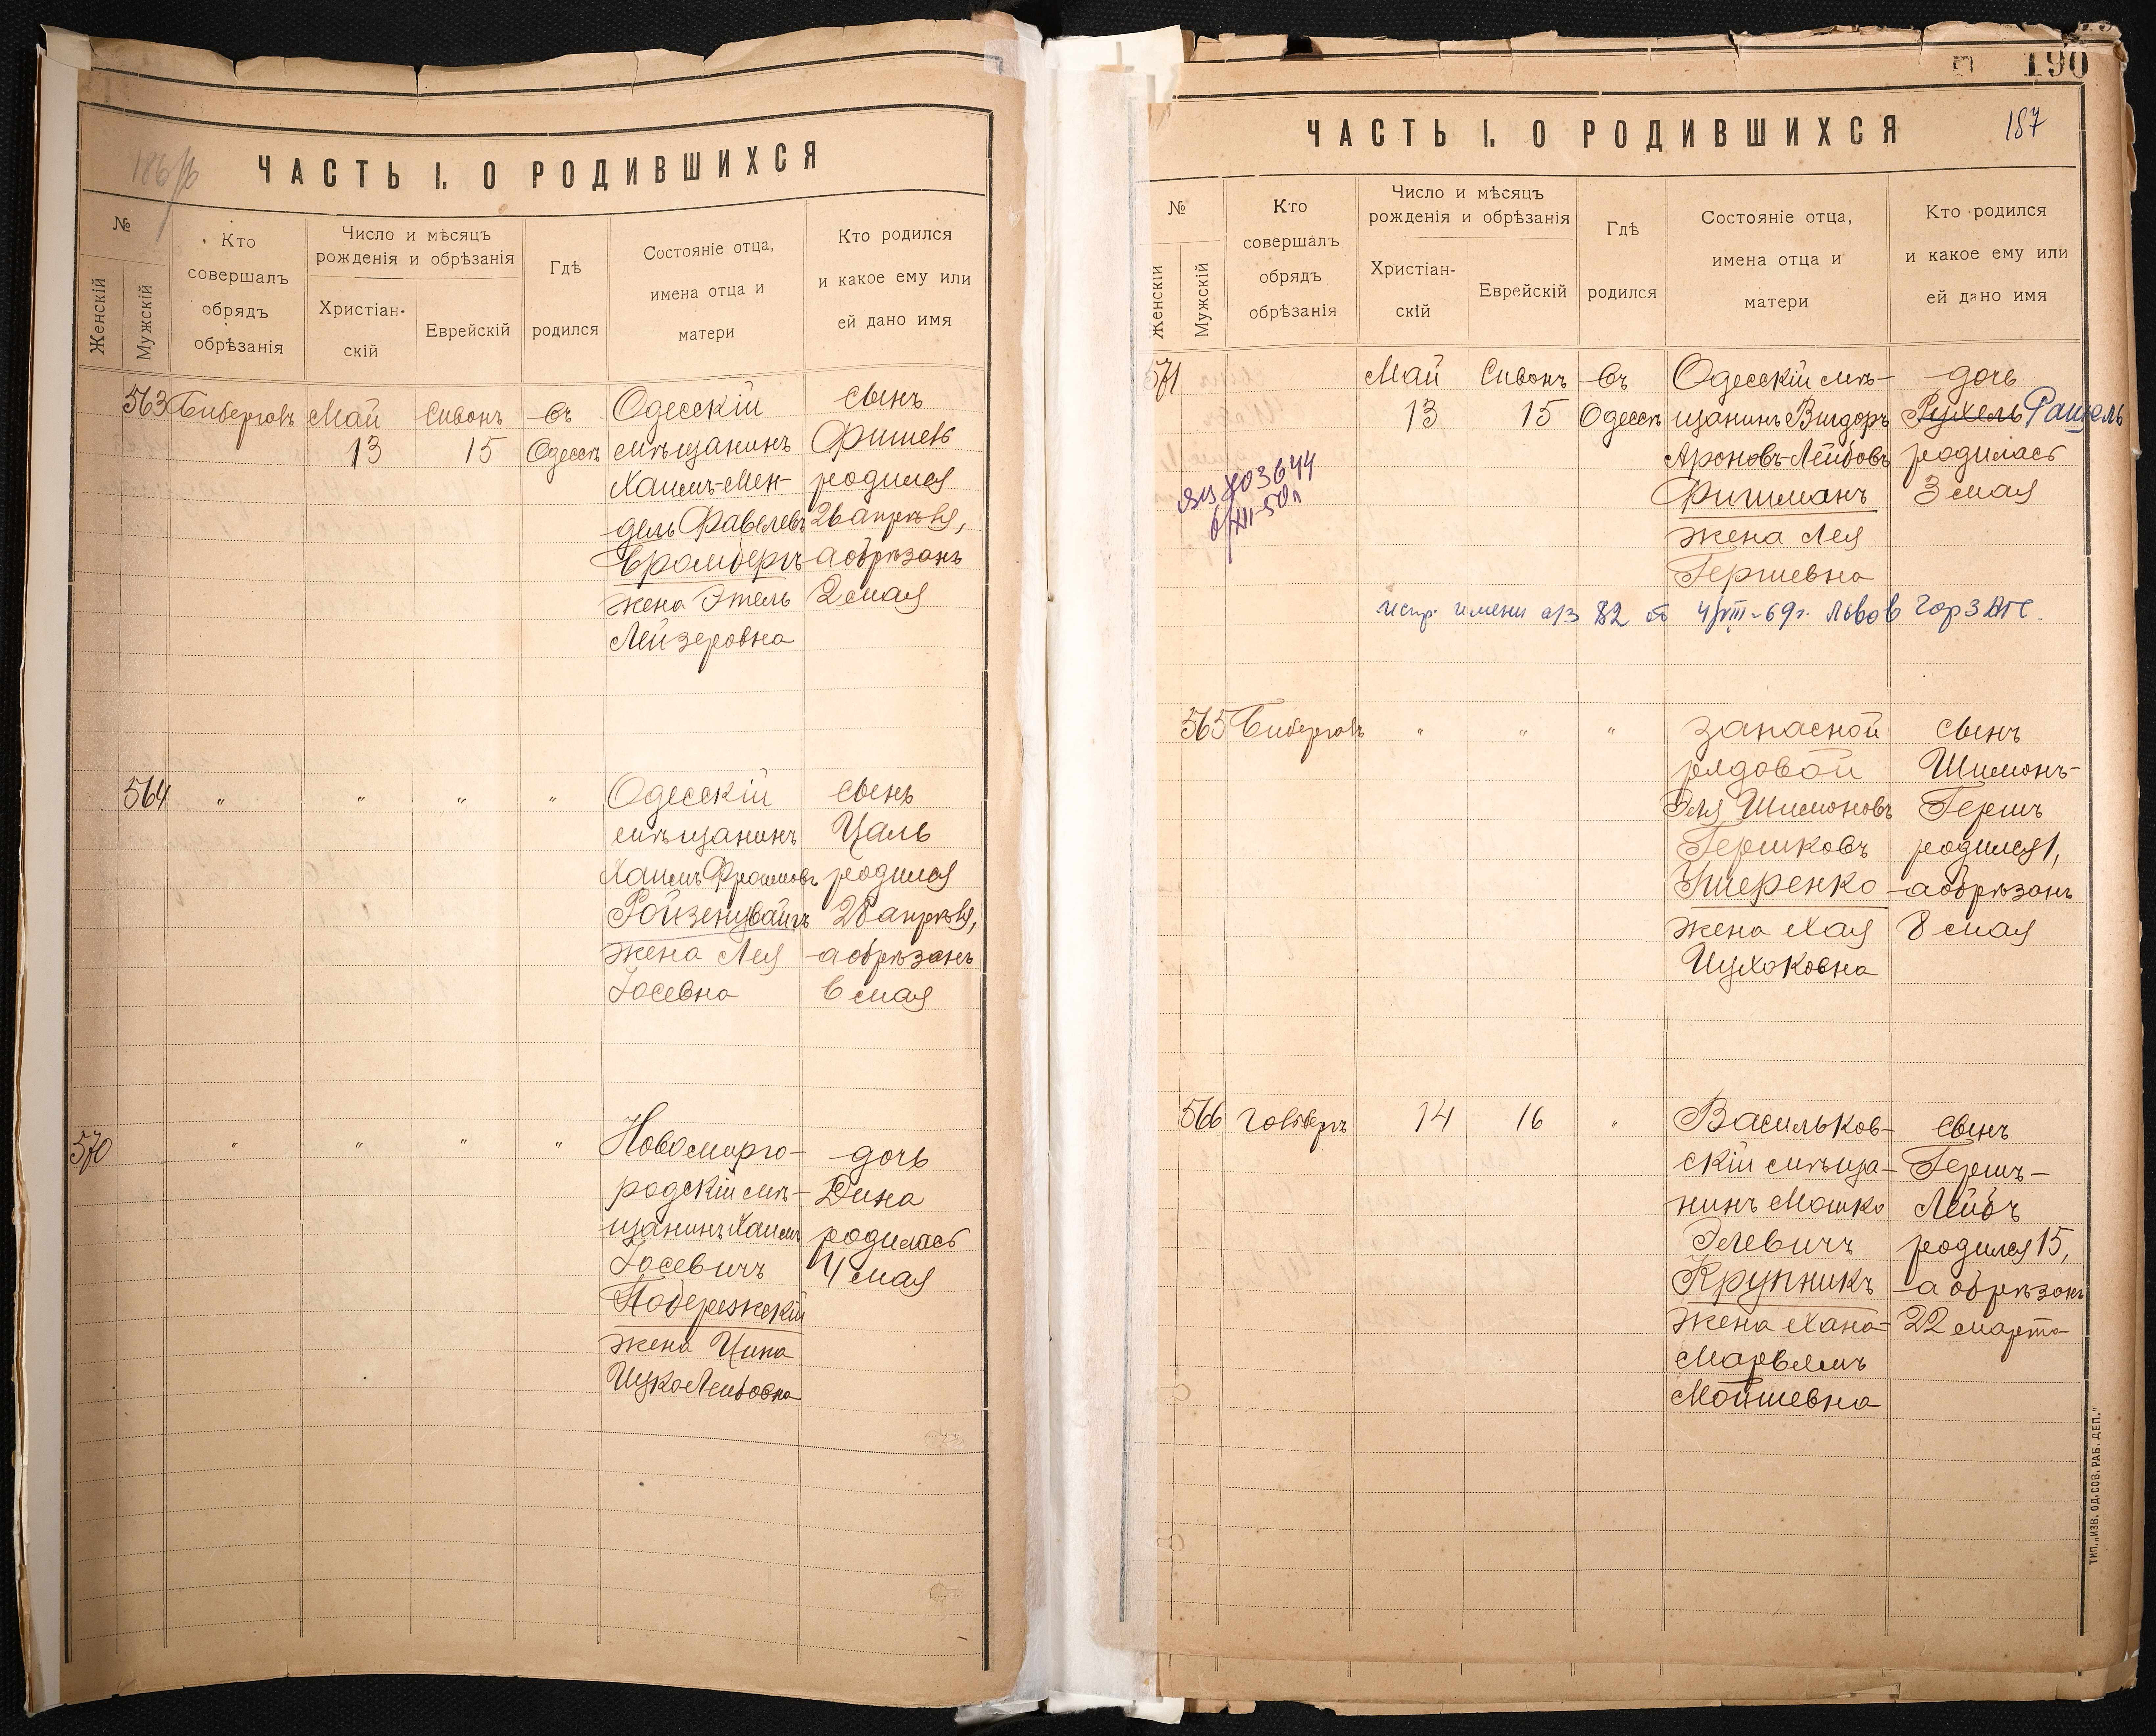 186 об
ЧАСТЬ I. О РОДИВШИХСЯ
№
Женскій
Мужскій
Кто
совершалъ
обрядъ
обрѣзанія
Число и мѣсяцъ
рожденія и обрѣзанія
Христіан-
скій
Еврейскій
Гдѣ
родился
Состояніе отца,
имена отца и
матери
Кто родился
и какое ему или
ей дано имя
563 Бибергалъ Май Сивонъ въ Одесскій сынъ
13 15 Одессѣ мѣщанинъ Фишель
Хаимъ-Мен- родился
дель Фавелевъ 26 апрѣля,
Бромбергъ а обрѣзанъ
жена Этель 2 мая
Лейзеровна
564 " " " " Одесскій сынъ
мѣщанинъ Цаль
Хаимъ Фроимовъ родился
Ройзенцвайгъ 28 апрѣля,
жена Лея а обрѣзанъ
Іосевна 6 мая
570 " " " " Новомирго- дочь
родскій мѣ- Дина
щанинъ Хаимъ родилась
Іосевичъ 4 мая
Побережскій
жена Ципа
Ицко-Лейбовна
190
187
ЧАСТЬ I. О РОДИВШИХСЯ
№
Женскій
Мужскій
Кто
совершалъ
обрядъ
обрѣзанія
Число и мѣсяцъ
рожденія и обрѣзанія
Христіан-
скій
Еврейскій
Гдѣ
родился
Состояніе отца,
имена отца и
матери
Кто родился
и какое ему или
ей дано имя
571 Май Сивонъ въ Одесскій мѣ- дочь
13 15 Одессѣ щанинъ Вигдоръ Рухель Рашель
Ароновъ-Лейбовъ родилась
Фишманъ 3 мая
жена Лея
Гершевна
703644
6/XII-50г
испр. имени а/з 82 от 4/VIII-69г. Львов ГорЗАГС
565 Бибергалъ " " " запасной сынъ
рядовой Шимонъ-
Эля Шимоновъ Гершъ
Гершковъ родился 1,
Ушеренко а обрѣзанъ
жена Хая 8 мая
Ицхоковна
566 14 16 " Васильков- сынъ
скій мѣща- Гершъ-
нинъ Мошко Лейбъ
Элевичъ родился 15,
Крупникъ а обрѣзанъ
жена Хана- 22 марта
Мойшевна
ТИП. „ИЗВ. ОД. СОВ. РАБ. ДЕП."